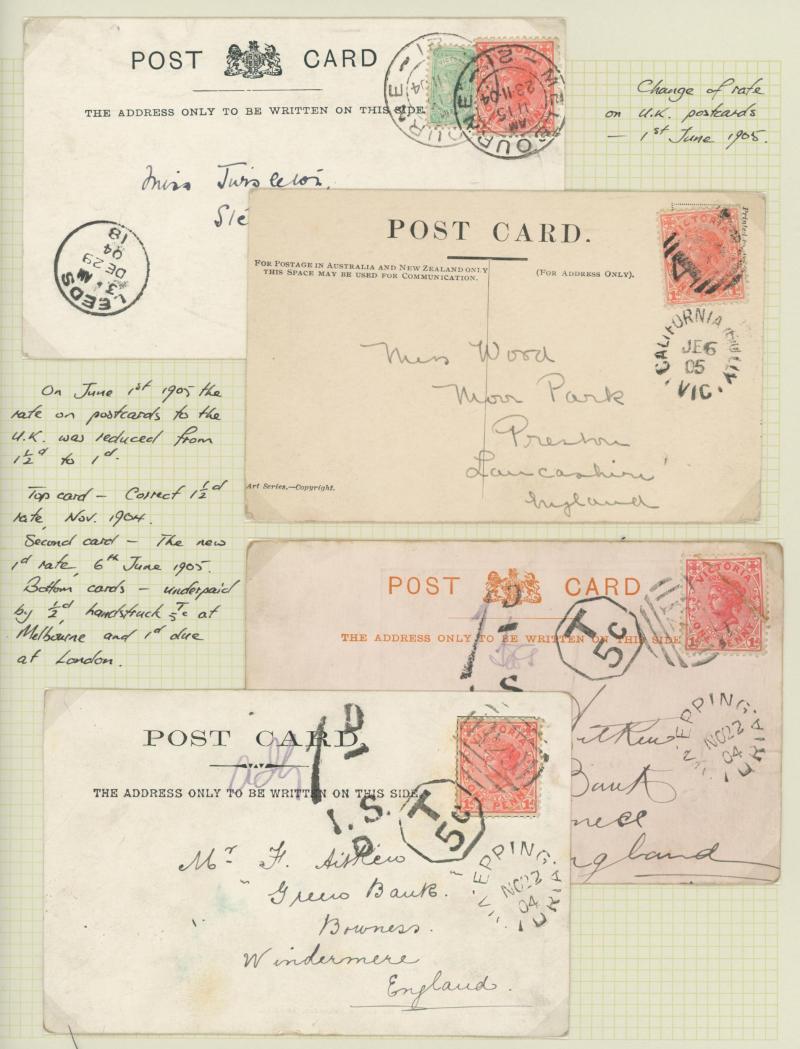 POST CARD
THE ADDRESS ONLY TO BE WRITTEN ON THIS SIDE
MELBOURNE
12
11 15 AM
23 11 04
Miss
LEEDS
3 AM
DE 29
04
18
Change of rate
on U.K. postcards
— 1st June 1905.
POST CARD.
FOR POSTAGE IN AUSTRALIA AND NEW ZEALAND ONLY
THIS SPACE MAY BE USED FOR COMMUNICATION.
(FOR ADDRESS ONLY).
VICTORIA
CALIFORNIA GULLY
JE 6
05
VIC.
Miss Wood
Moor Park
Preston
Lancashire
England
Art Series.—Copyright.
On June 1st 1905 the
rate on postcards to the
U.K. was reduced from
1½d to 1d.
Top card — Correct 1½d
rate, Nov. 1904.
Second card — The new
1d rate, 6th June 1905.
Bottom cards — underpaid
by ½d, handstruck T 5c at
Melbourne and 1d due
at London.
POST CARD
THE ADDRESS ONLY TO BE WRITTEN ON THIS SIDE
VICTORIA
ONE PENNY
1D
T
5c
EPPING
NO 22
04
VICTORIA
Aitken
Bank
England
POST CARD
THE ADDRESS ONLY TO BE WRITTEN ON THIS SIDE.
1D
I.S.
D
T
5c
EPPING
NO 22
04
VICTORIA
Mr F. Aitken
Green Bank.
Bowness.
Windermere
England.